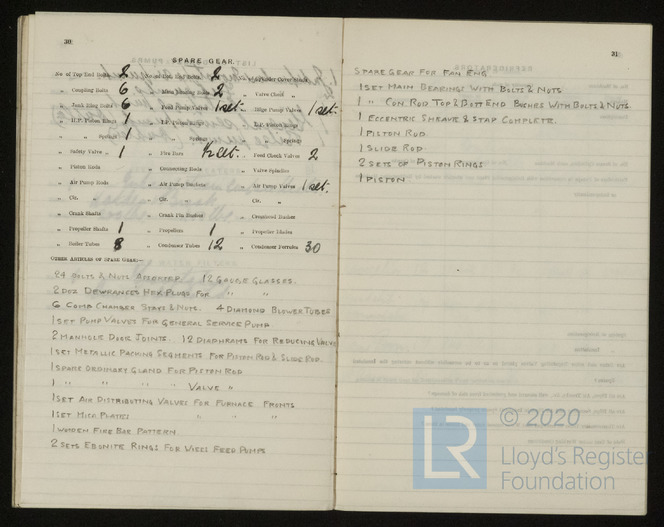 30
SPARE GEAR.
No of Top End Bolts 2 No of Bot. End Bolts 2 Cylinder Cover Studs
„ Coupling Bolts 6 „ Main Bearing Bolts 2 „ Valve Chest „
„ Junk Ring Bolts 6 „ Feed Pump Valves 1 set. „ Bilge Pump Valves 1 set.
„ H.P. Piston Rings 1 „ I.P. Piston Rings „ L.P. Piston Rings
„ „ Springs 1 „ „ Springs „ „ Springs
„ Safety Valve „ 1 „ Fire Bars ½ set. „ Feed Check Valves 2
„ Piston Rods „ Connecting Rods „ Valve Spindles
„ Air Pump Rods „ Air Pump Buckets „ Air Pump Valves 1 set.
„ Cir. „ „ Cir. „ „ Cir. „
„ Crank Shafts „ Crank Pin Bushes „ Crosshead Bushes
„ Propeller Shafts 1 „ Propellers 1 „ Propeller Blades
„ Boiler Tubes 8 „ Condenser Tubes 12 „ Condenser Ferrules 30
OTHER ARTICLES OF SPARE GEAR:—
24 BOLTS & NUTS ASSORTED 12 GAUGE GLASSES.
2 DOZ DEWRANCES HEX PLUGS FOR „ „
6 COMB CHAMBER STAYS & NUTS. 4 DIAMOND BLOWER TUBES
1 SET PUMP VALVES FOR GENERAL SERVICE PUMP
2 MANHOLE DOOR JOINTS. 12 DIAPHRAMS FOR REDUCING VALVE
1 SET METALLIC PACKING SEGMENTS FOR PISTON ROD & SLIDE ROD.
1 SPARE ORDINARY GLAND FOR PISTON ROD
1 „ „ „ „ VALVE „
1 SET AIR DISTRIBUTING VALVES FOR FURNACE FRONTS
1 SET MICA PLATES „ „
1 WOODEN FIRE BAR PATTERN
2 SETS EBONITE RINGS FOR WEIRS FEED PUMPS
31
SPARE GEAR FOR FAN ENG
1 SET MAIN BEARINGS WITH BOLTS & NUTS
1 „ CON ROD TOP & BOTT END BUSHES WITH BOLTS & NUTS
1 ECCENTRIC SHEAVE & STAP COMPLETE.
1 PISTON ROD
1 SLIDE ROD
2 SETS OF PISTON RINGS
1 PISTON
LR
© 2020
Lloyd's Register
Foundation